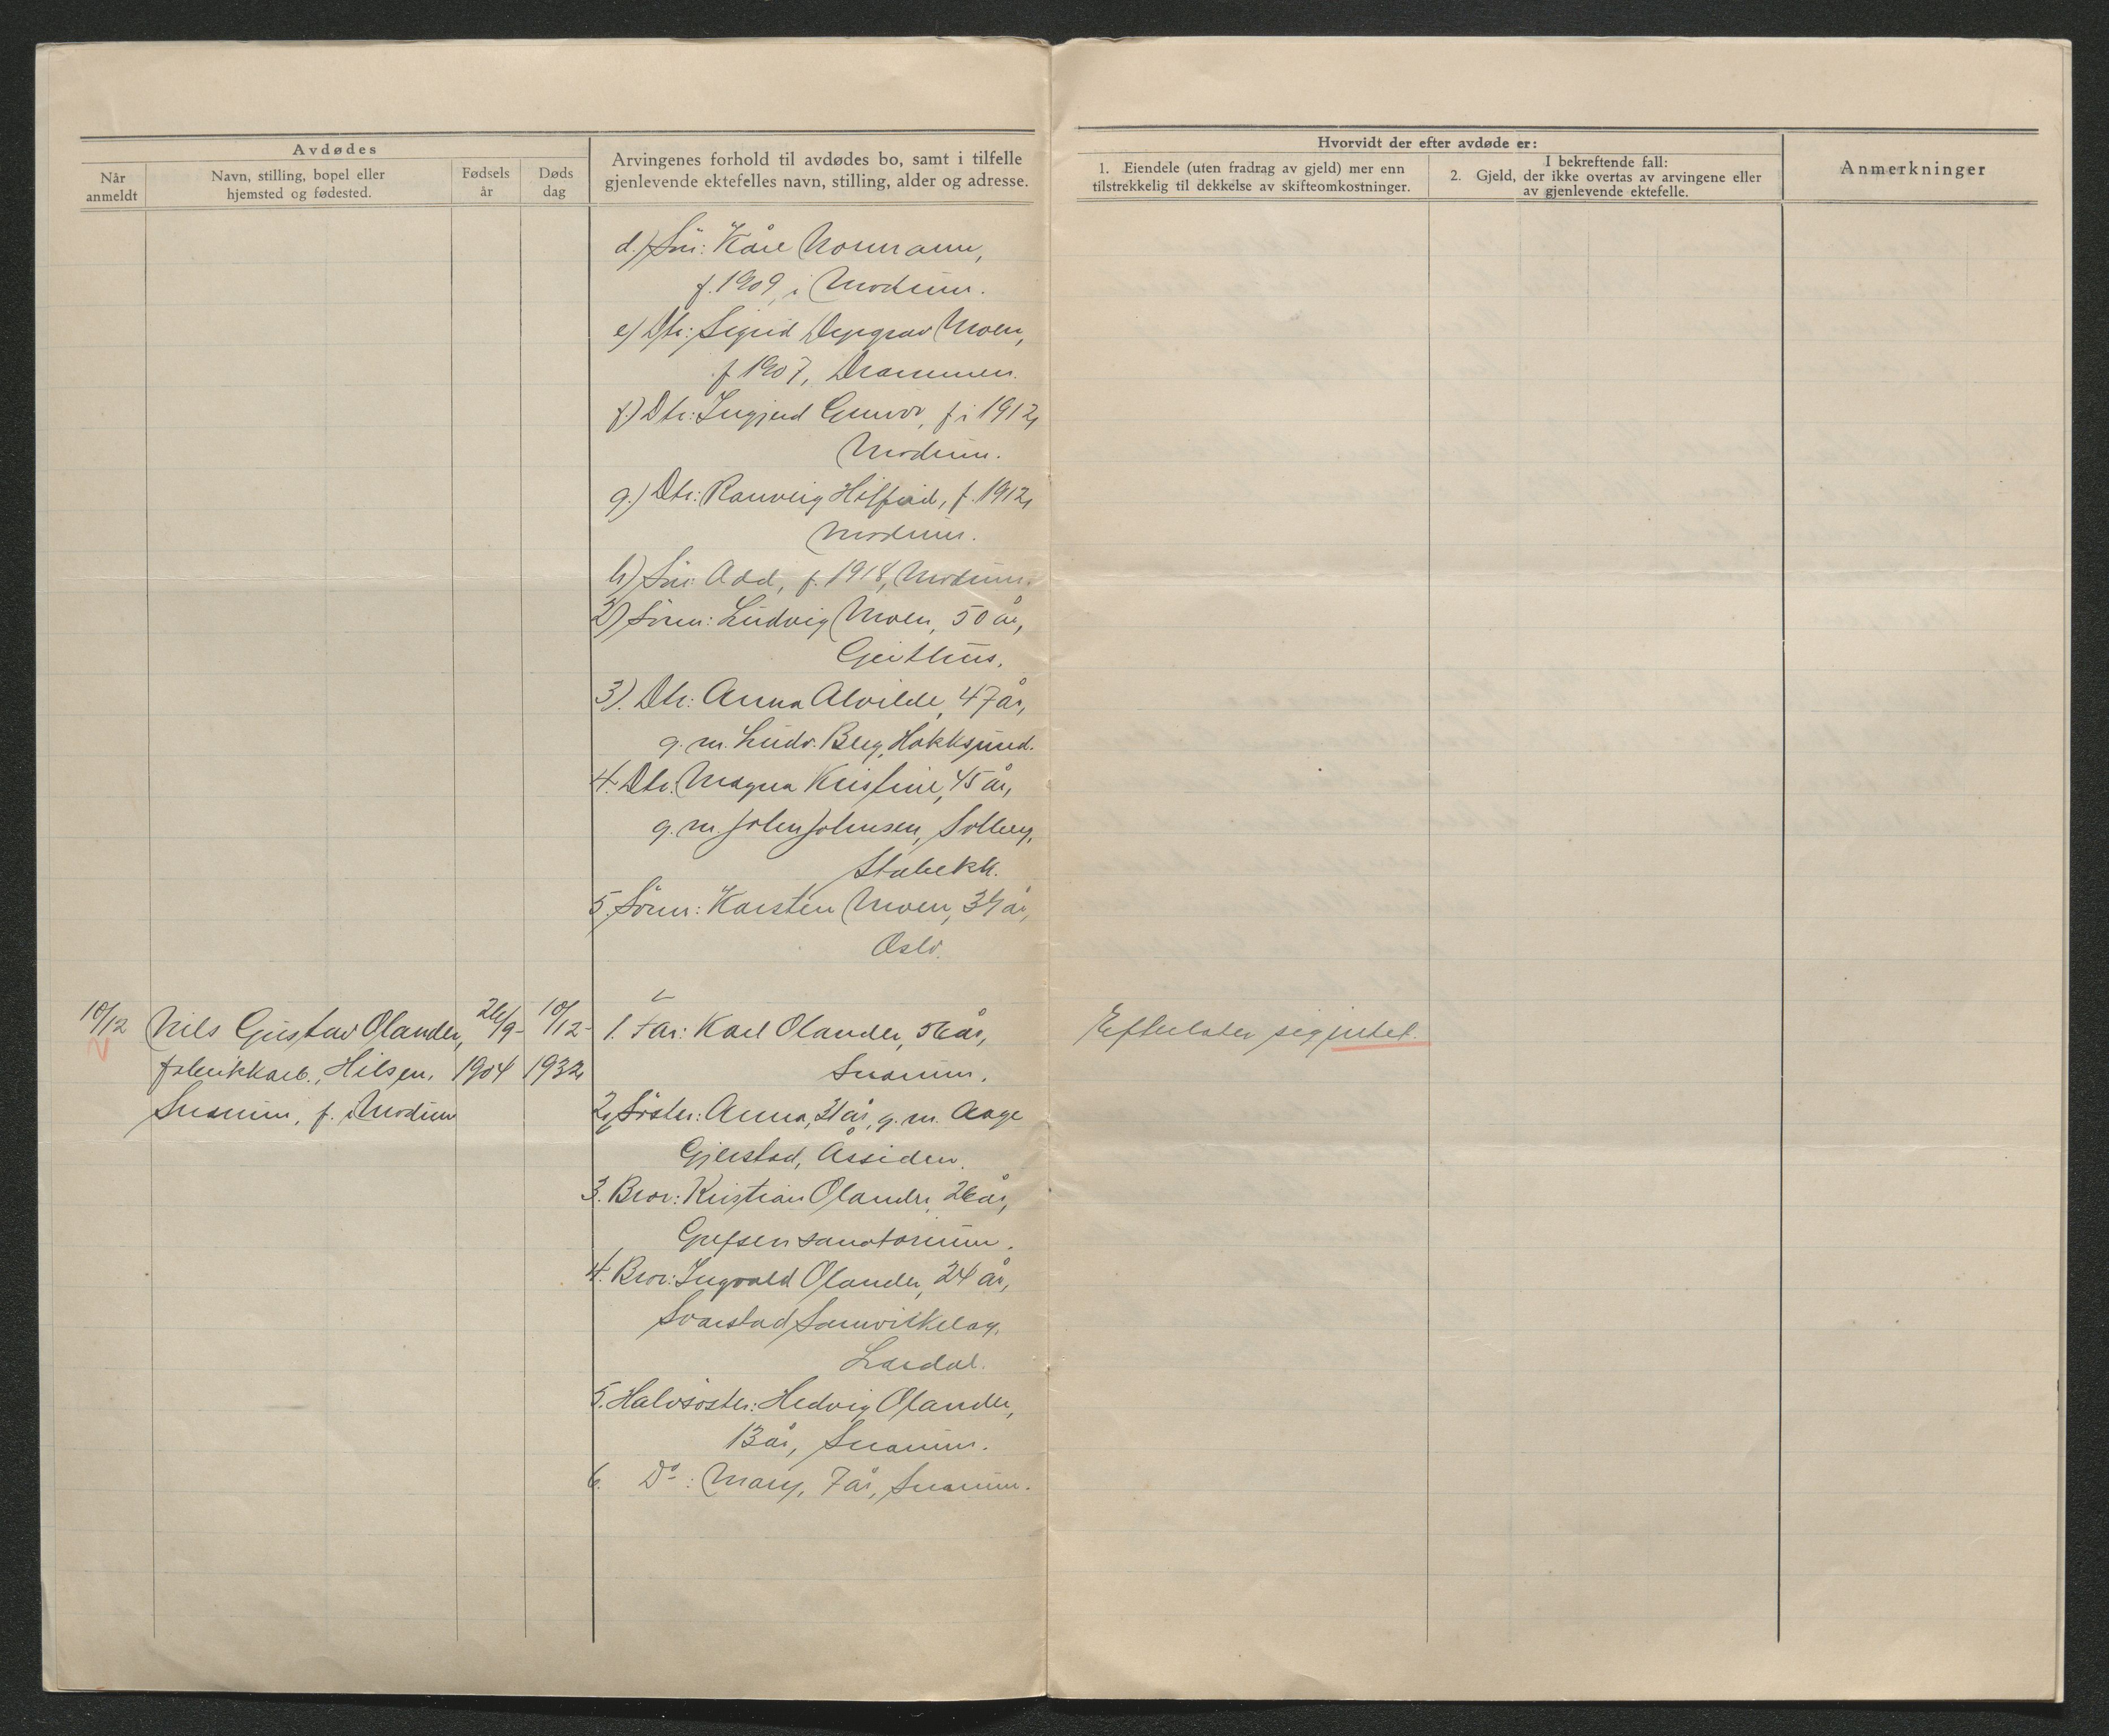 Avdødes
Når anmeldt
Navn, stilling, bopel eller hjemsted og fødested.
Fødsels år
Døds dag
Arvingenes forhold til avdødes bo, samt i tilfelle
gjenlevende ektefelles navn, stilling, alder og adresse.
Hvorvidt der efter avdøde er:
1. Eiendele (uten fradrag av gjeld) mer enn
tilstrekkelig til dekkelse av skifteomkostninger.
I bekreftende fall:
2. Gjeld, der ikke overtas av arvingene eller
av gjenlevende ektefelle.
Anmerkninger
d.) Sön: Kåre Normann,
f. 1909, i Modum.
e) Dtr: Sigrid Depgrav Moen,
f 1907, Drammen.
f.) Dtr: Ingjerd Gunvor, f i 1912,
Modum.
g.) Dtr: Ranveig Hilfrid, f. 1912,
Modum.
h) Sön: Odd, f. 1918, Modum.
2) Sönn: Ludvig Moen, 50 år,
Geithus.
3). Dtr: Anna Alvilde, 47 år,
g. m. Ludv. Berg, Hokksund.
4. Dtr. Magna Kristine, 45 år,
g. m. John Johnsen, Solberg,
Stabekk.
5. Sönn: Karsten Moen, 34 år,
Oslo.
10/12 Nils Gustav Olander, 26/9- 10/12- 1. Far: Karl Olander, 56 år, Efterlater sig intet.
fabrikkarb., Hilsen, 1904 1932 Snarum.
Snarum, f. i Modum 2, Söster: Anna, 31 år, g. m. Aage
Gjerstad, Åssiden.
3. Bror: Kristian Olander, 26 år,
Grefsen sanatorium.
4. Bror: Ingvald Olander, 24 år,
Svarstad Samvirkelag,
Lardal.
5. Halvsöster: Hedvig Olander,
13 år, Snarum.
6. Do: Mary, 7 år, Snarum.